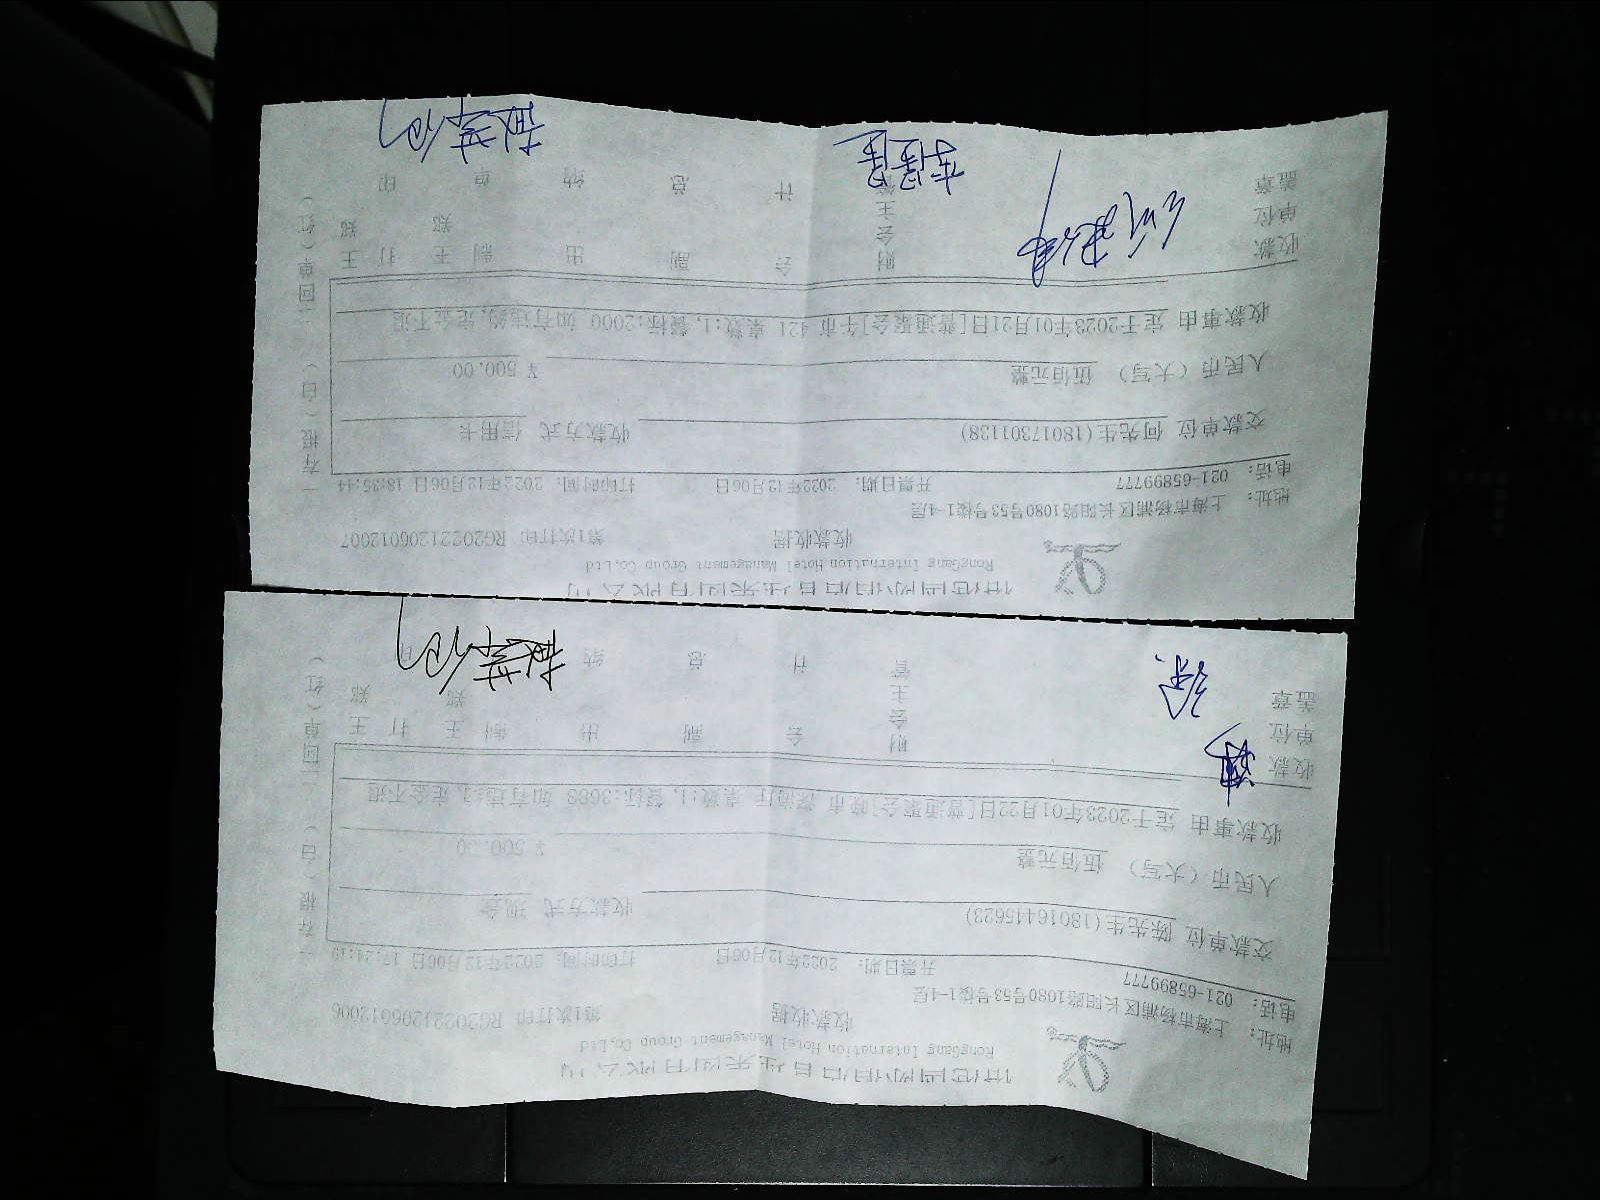 RongGang Internation Hotel Management Group Co,Ltd
收款收据 第1次打印 RG20221206012006
地址: 上海市杨浦区长阳路1080号53号楼1-4层
电话: 021-65899777 开票日期: 2022年12月06日 打印时间: 2022年12月06日 17:24:19
交款单位 陈先生(13016445623) 收款方式 现金
人民币（大写） 伍佰元整 ¥ 500.00
收款事由 定于2023年01月22日[普通聚会]晚市 深海庄 桌数:1, 餐标:3688 如有违约, 定金不退
收款单位盖章 财会主管 会计 副总 出纳 制 王郑 打印 王郑
一存根（白） 二回单（红）
RongGang Internation Hotel Management Group Co,Ltd
收款收据 第1次打印 RG20221206012007
地址: 上海市杨浦区长阳路1080号53号楼1-4层
电话: 021-65899777 开票日期: 2022年12月06日 打印时间: 2022年12月06日 18:35:44
交款单位 何先生(18017301138) 收款方式 信用卡
人民币（大写） 伍佰元整 ¥ 500.00
收款事由 定于2023年01月21日[普通聚会]午市 421 桌数:1, 餐标:2000 如有违约, 定金不退
收款单位盖章 财会主管 会计 副总 出纳 制单 王郑 打印 王郑
一存根（白） 二回单（红）